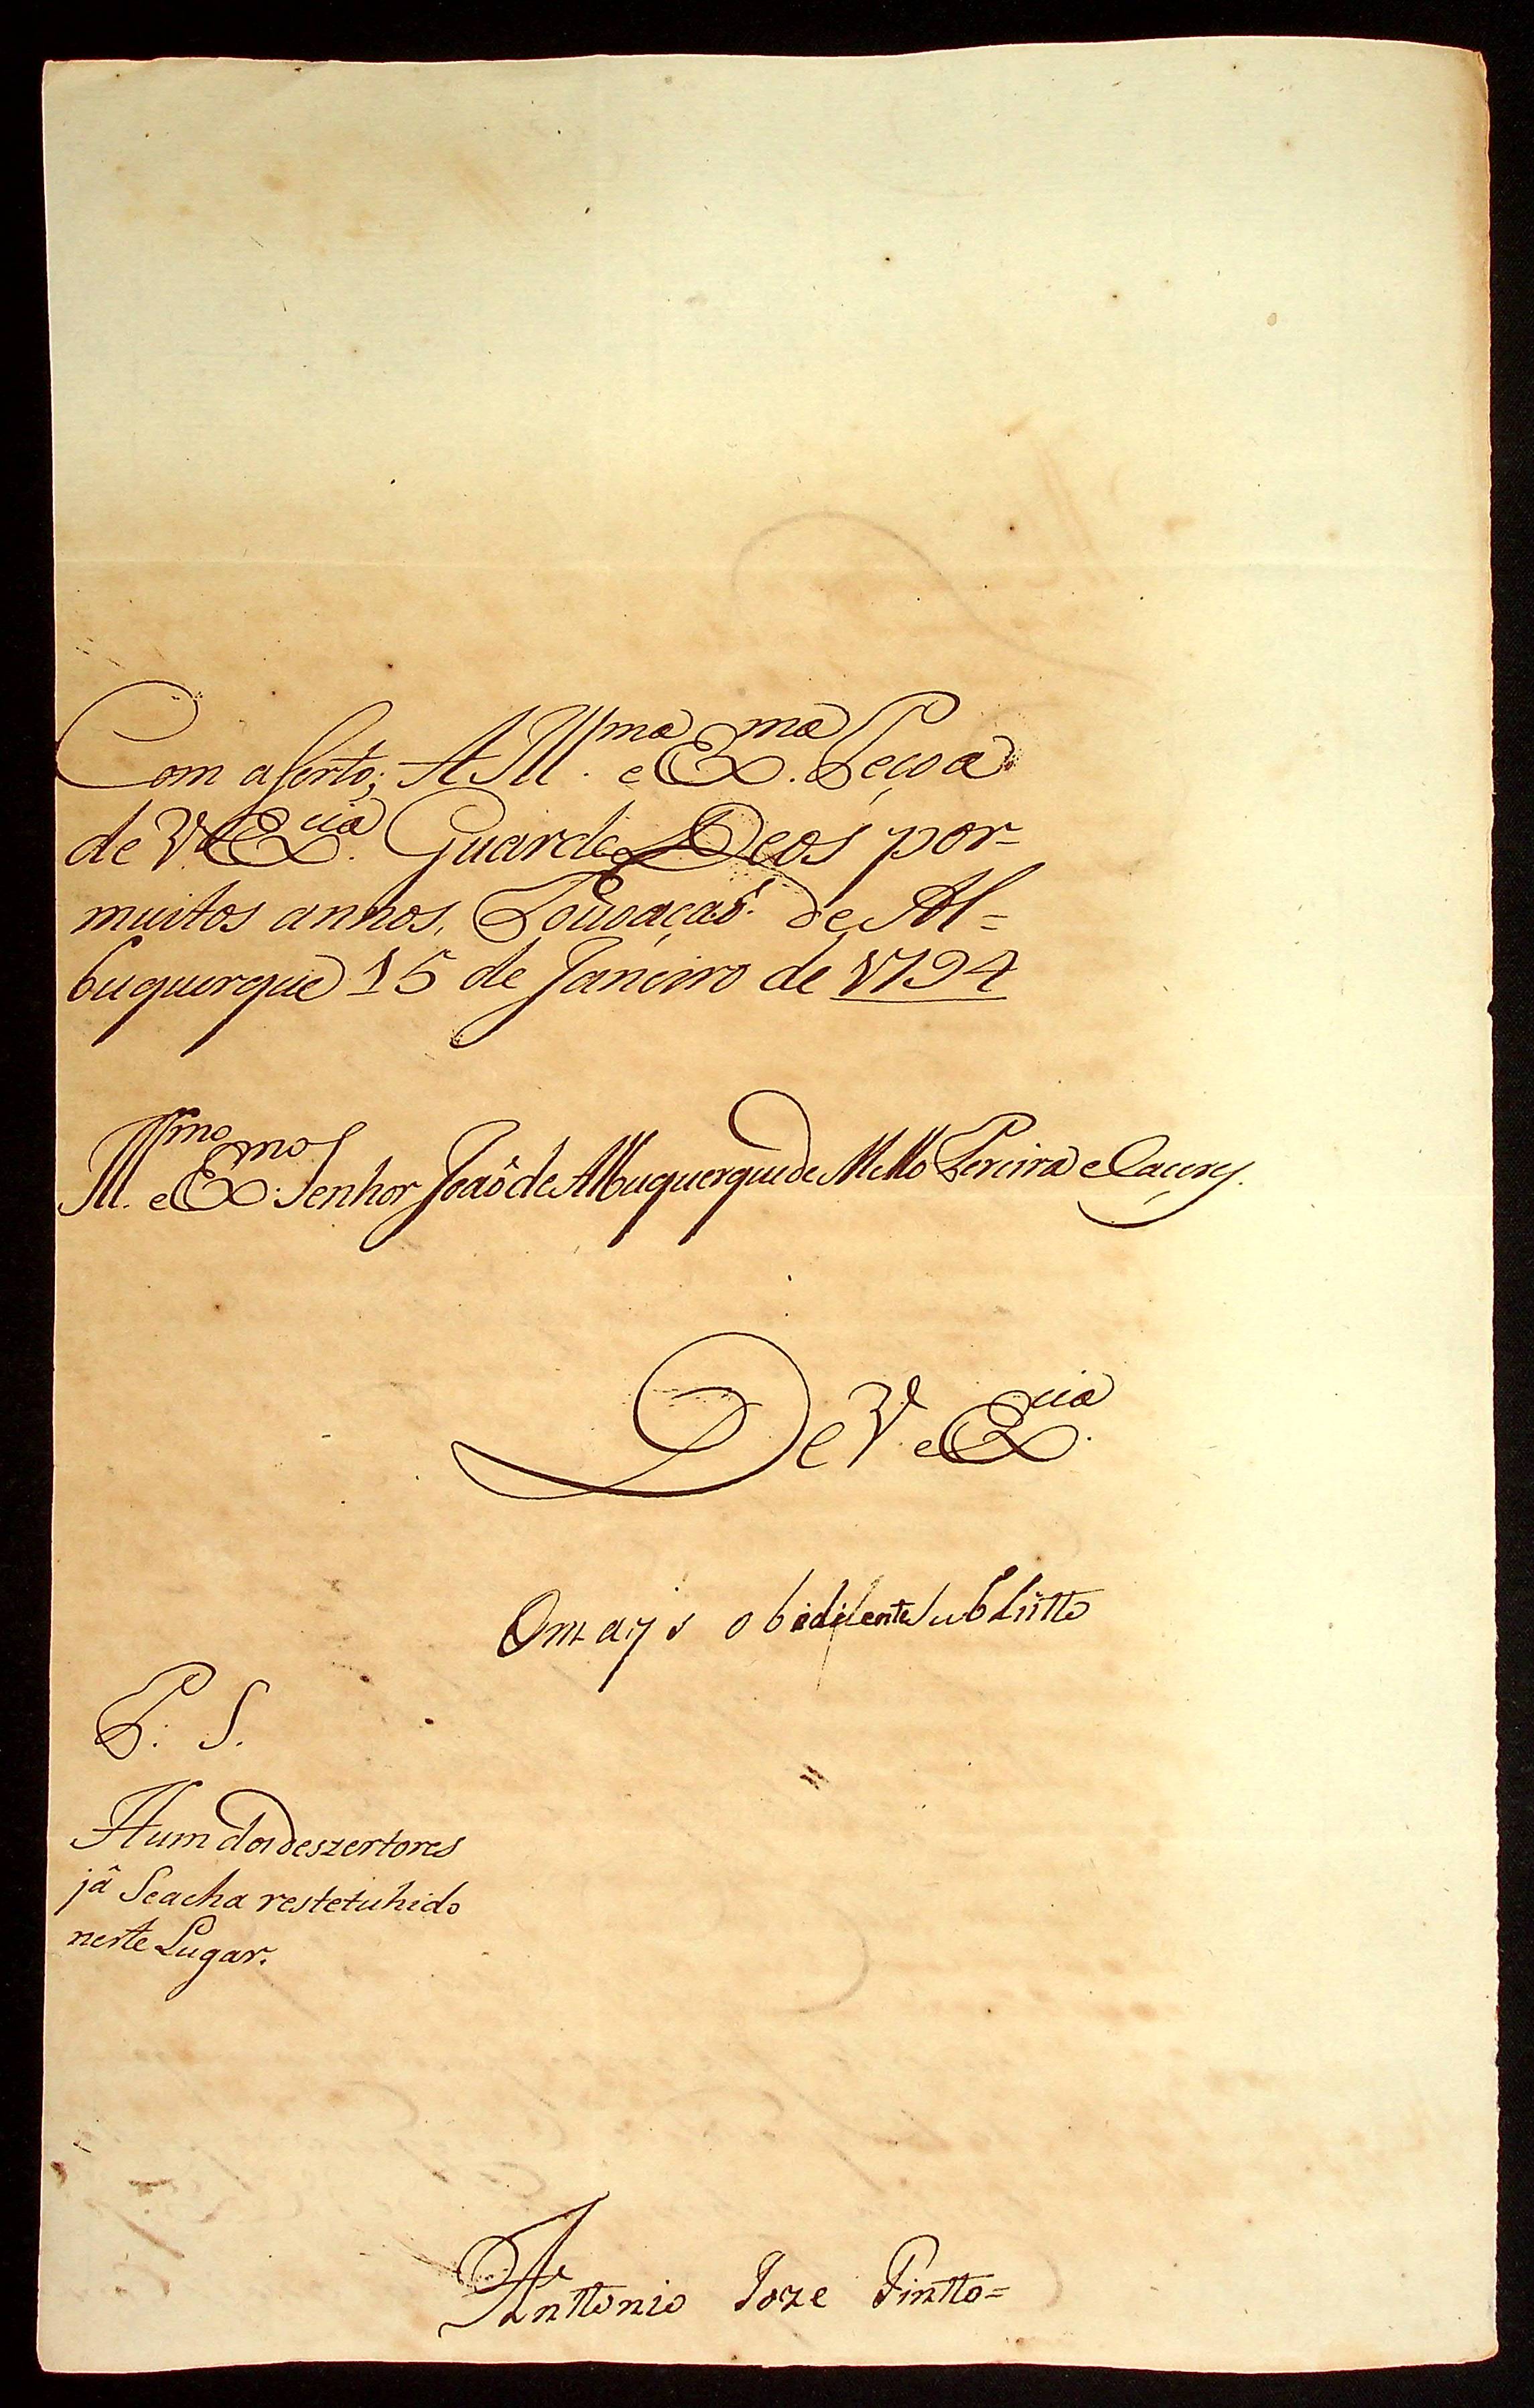 Com aserto; A Ill.ma e Ex.ma Peçoa
de V. Ex.cia Guarde Deos por-
muitos annos, Povoaçaõ de Al=
buquerque 15 de Janeiro de 1794
Ill.mo e Ex.mo Senhor Joaõ de Albuquerque de Mello Pereira e Caceres.
De V. Ex.cia
O mays obidiente Subditto
P. S.
Hum dos deszertores
jâ Se acha restetuhido
neste Lugar.
Anttonio Joze Pintto=